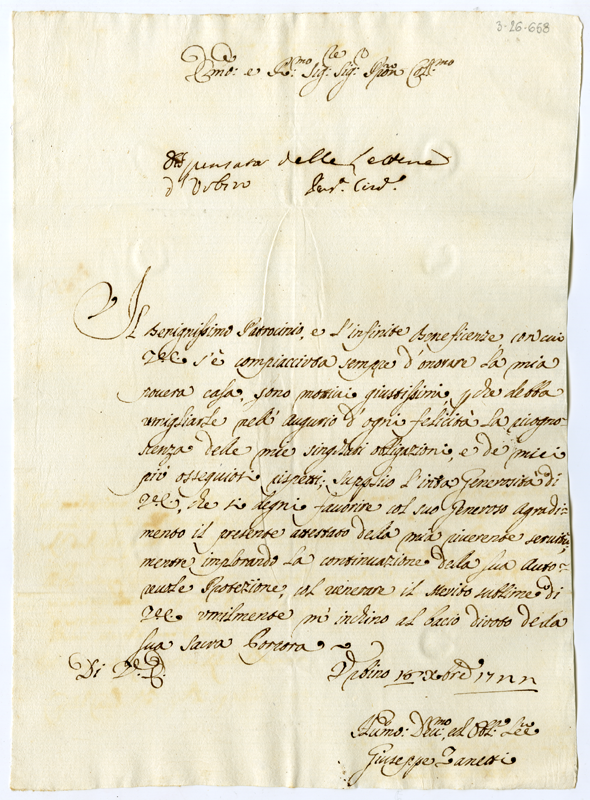 3-26-668
Em̃o: e R.mo Sig: Sig: P̃ron Col.mo
delle Lettere
d'Urbino
Il Benignissimo Patrocinio, e l'infinite Beneficenze, con cui
V.E. s'è compiacciuta sempre d'onorare la mia
povera casa, sono motivi giustissimi, che debba
umigliarle nell'Augurio d'ogni felicità la ricogno-
scenza delle mie singolari obligazioni, e de' miei
più ossequiosi rispetti; supplico l'inta Generosità di
V.E. che si degni favorire col suo generoso agradi-
mento il presente attestato della mia riverente servitù,
mentre implorando la continuazione della sua Auto-
revole Protezione, col venerare il Merito sublime di
V.E. umilmente m'inchino al bacio divoto della
sua Sacra Porpora
Di V.E.
Urbino Xbre 17
Giuseppe Zanetti